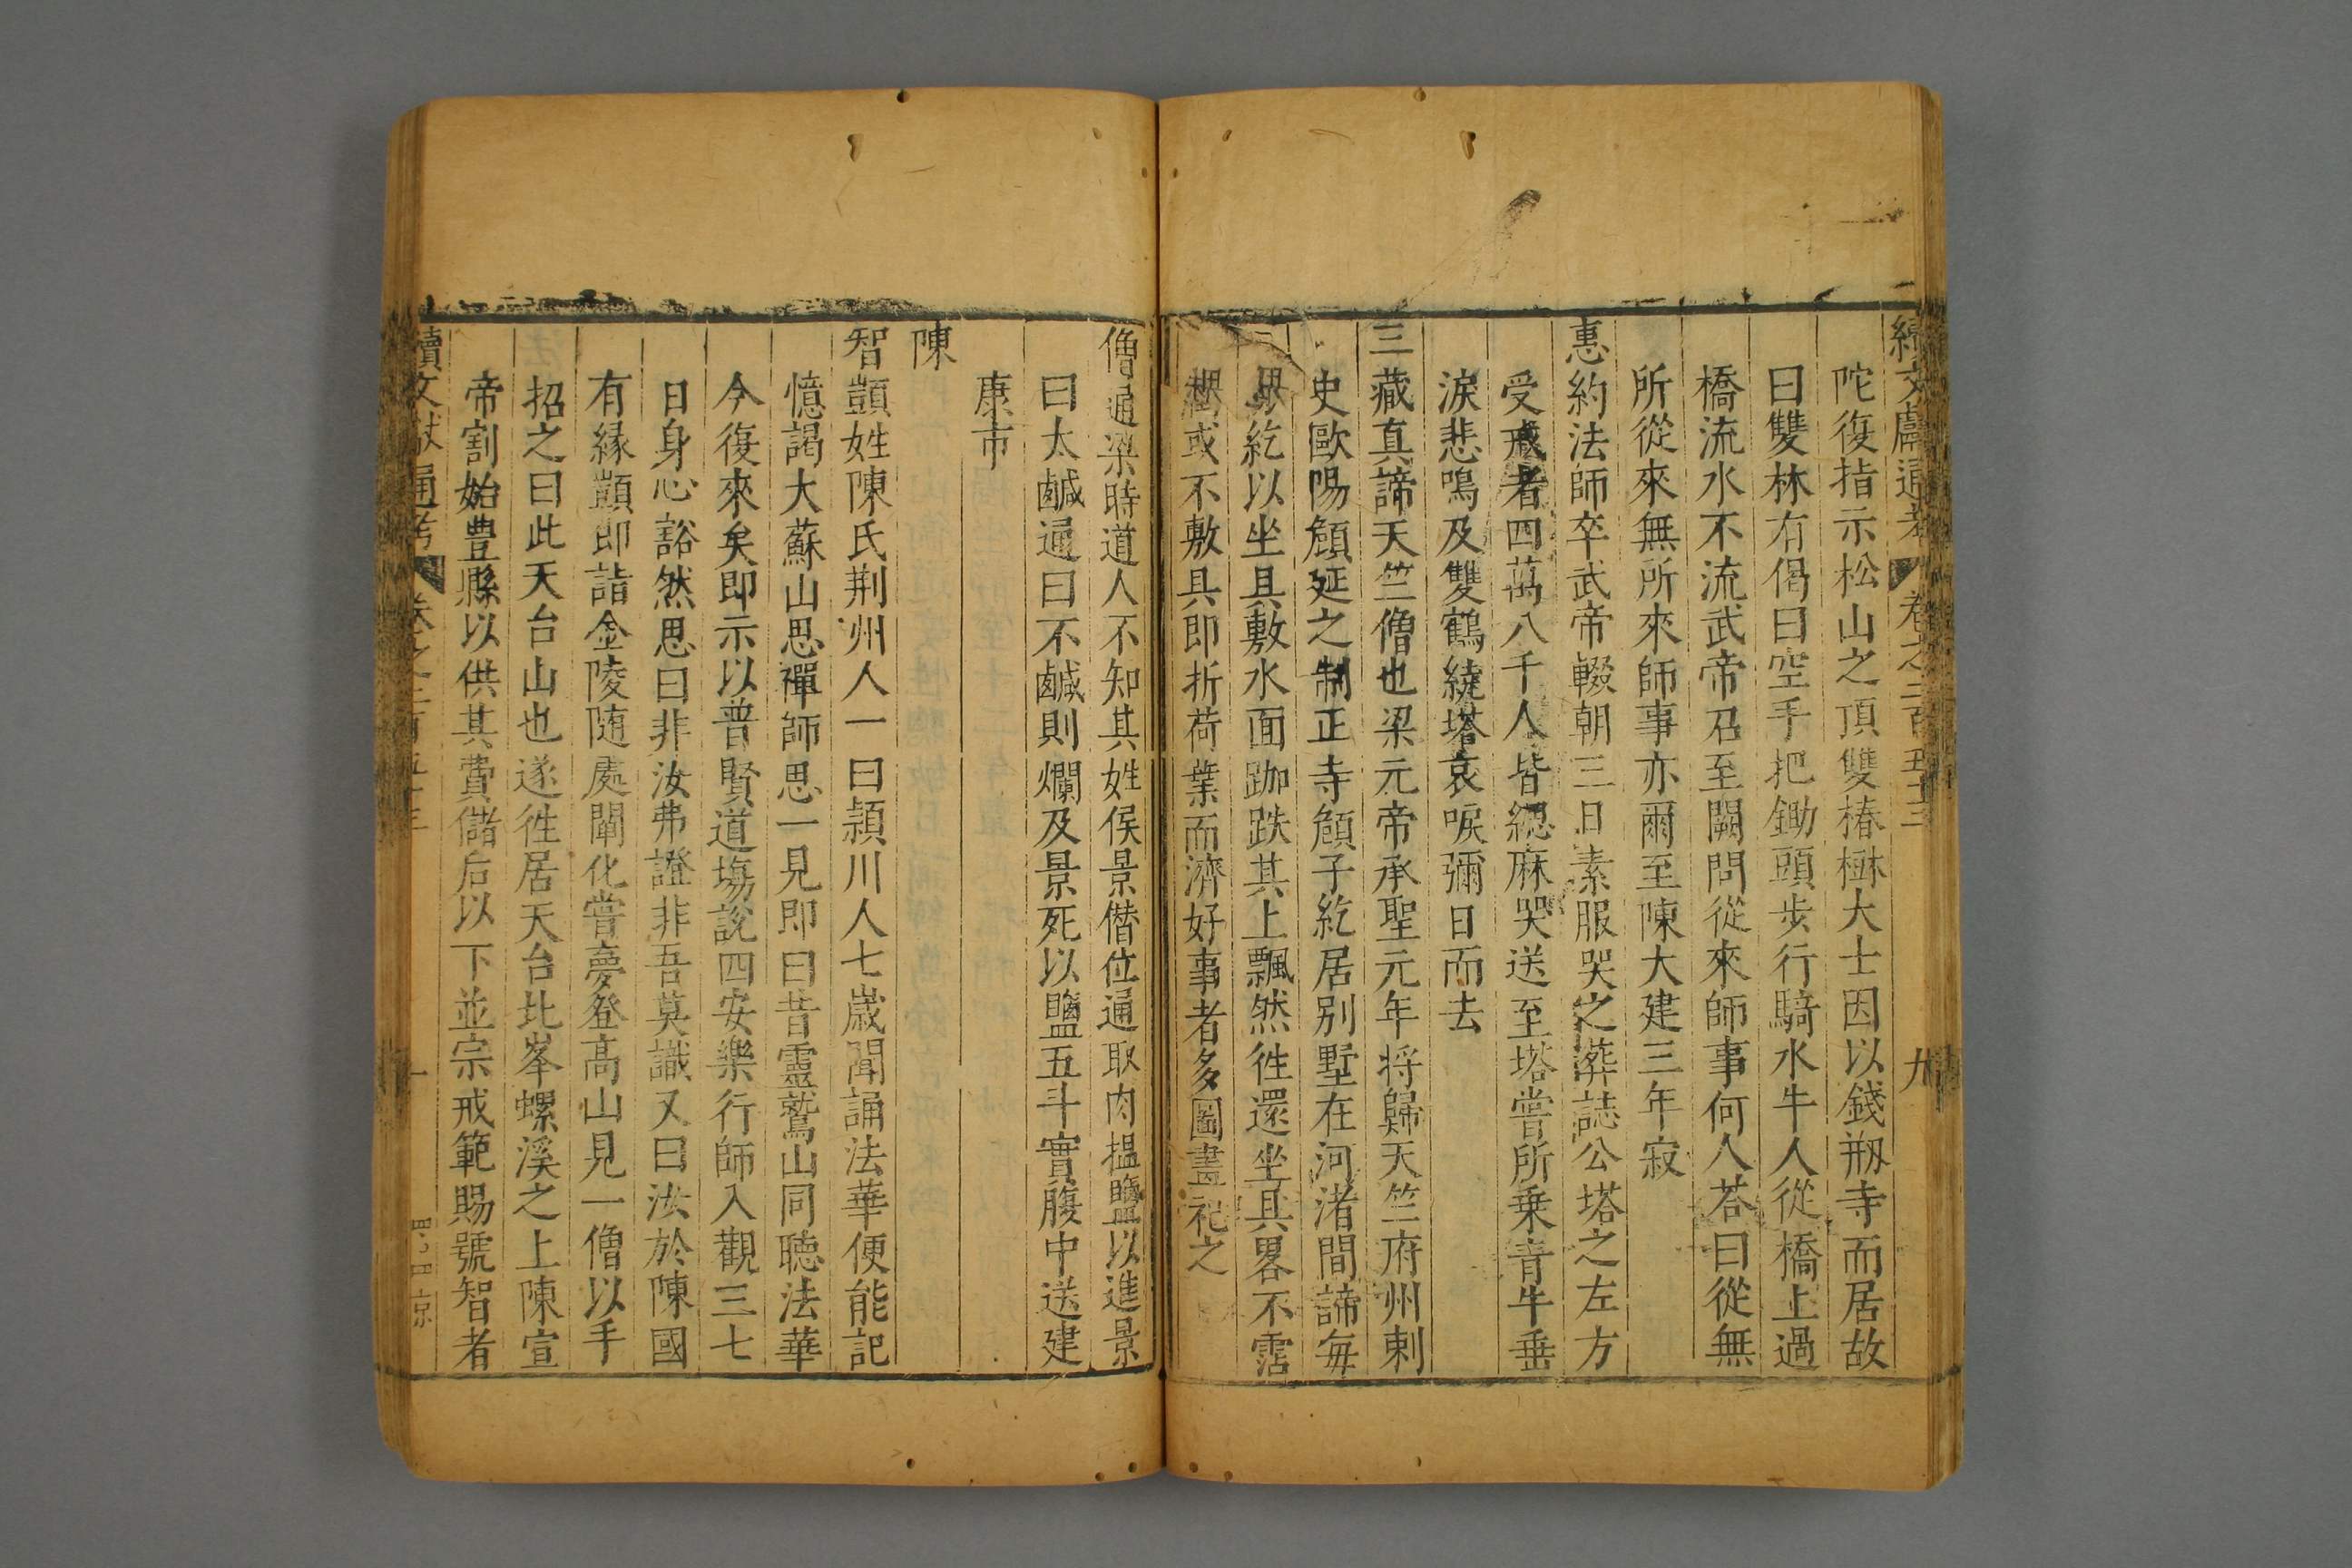 續文獻通考 卷之二百五十三 九
陀復指示松山之頂雙椿樹大士因以錢剏寺而居故
曰雙林有偈曰空手把鋤頭步行騎水牛人從橋上過
橋流水不流武帝召至闕問從來師事何人荅曰從無
所從來無所來師事亦爾至陳大建三年寂
惠約法師卒武帝輟朝三日素服哭之葬誌公塔之左方
受戒者四萬八千人皆緦麻哭送至塔嘗所乗青牛垂
淚悲鳴及雙鶴繞塔哀唳彌日而去
三藏真諦天竺僧也梁元帝承聖元年将歸天竺府州刺
史歐陽頠延之制正寺頠子紇居別墅在河渚間諦每
與紇以坐具敷水面跏趺其上飄然徃還坐具畧不霑
濕或不敷具即折荷葉而濟好事者多圖畫祀之
僧通梁時道人不知其姓侯景僣位通取肉揾鹽以進景
曰太鹹通曰不鹹則爛及景死以鹽五斗實腹中送建
康市
陳
智顗姓陳氏荆州人一曰潁川人七歲聞誦法華便能記
憶謁大蘇山思禪師思一見即曰昔靈鷲山同聴法華
今復來矣即示以普賢道塲説四安樂行師入觀三七
日身心豁然思曰非汝弗證非吾莫識又曰汝於陳國
有縁顗即詣金陵随處闡化嘗夢登高山見一僧以手
招之曰此天台山也遂徃居天台北峯螺溪之上陳宣
帝割始豊縣以供其費儲后以下並宗戒範賜號智者
續文献通考 卷之二百五十三